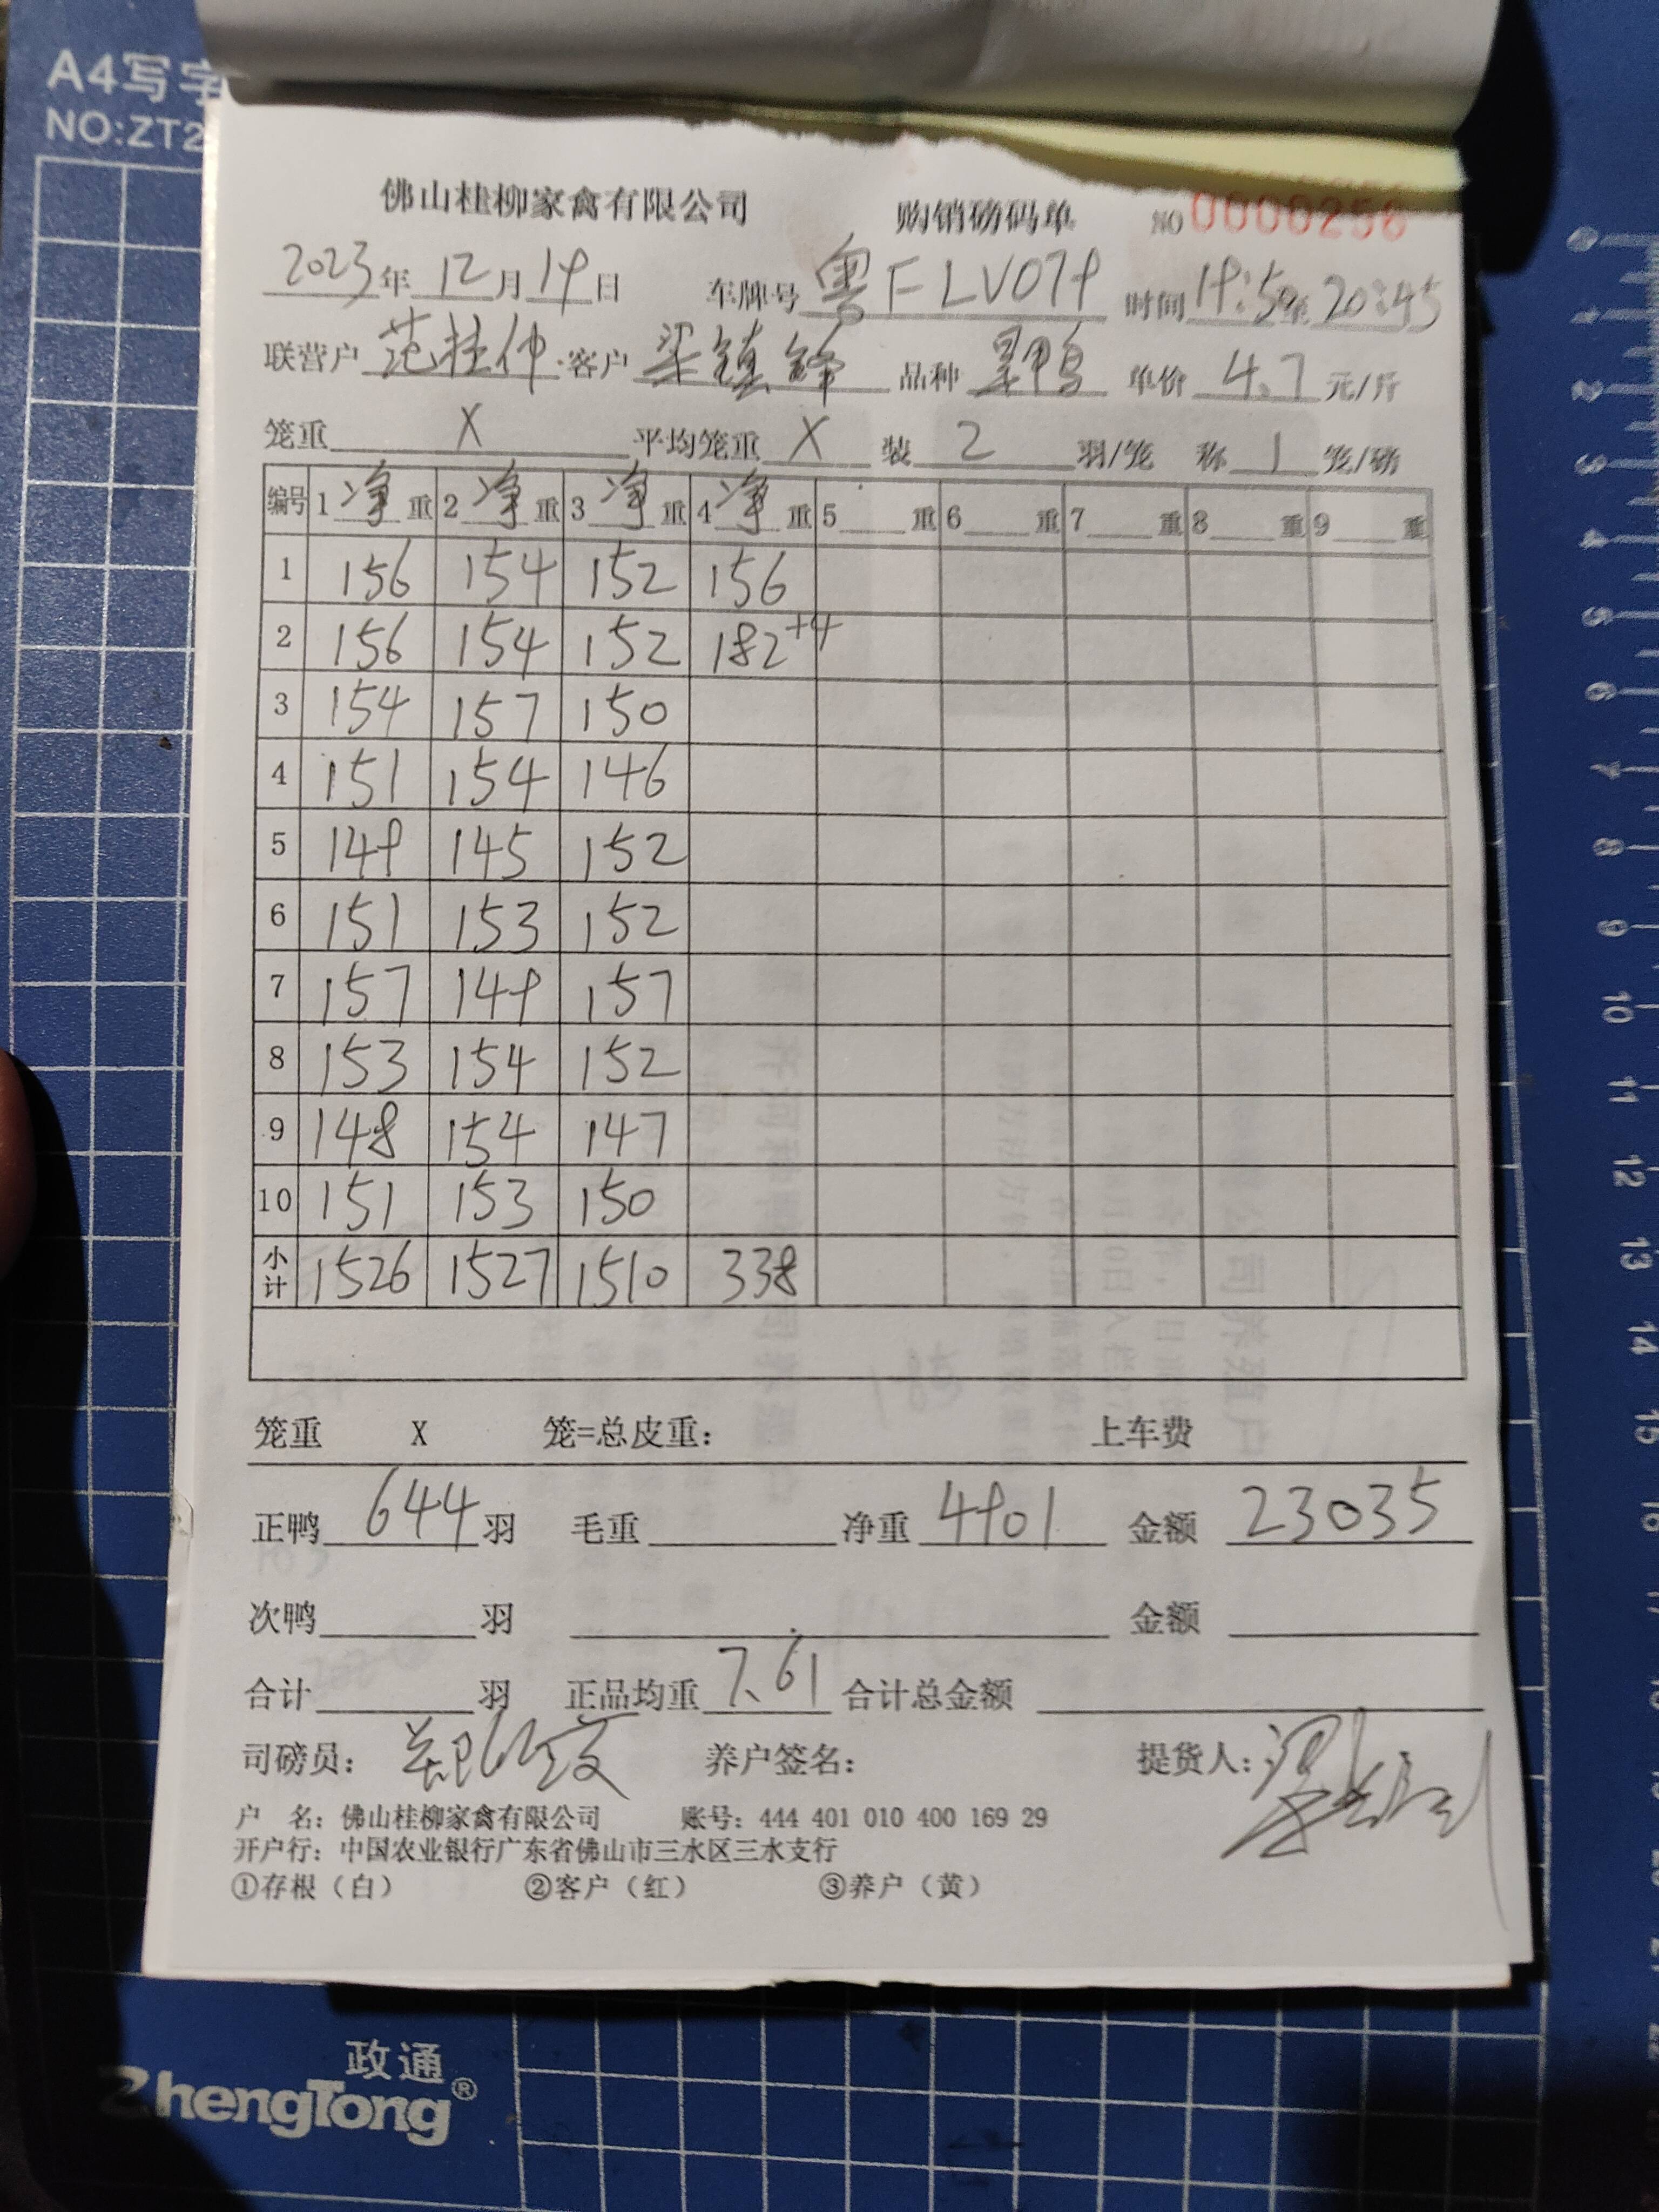 A4写字
NO:ZT2
佛山桂柳家禽有限公司 购销磅码单 NO 0000256
2023年12月19日 车牌号 粤F LV079 时间 19:50至20:45
联营户 范桂仲 客户 梁镇锋 品种 鸭 单价 4.7 元/斤
笼重 X 平均笼重 X 装 2 羽/笼 称 1 笼/磅
编号 1 净重 2 净重 3 净重 4 净重 5 重 6 重 7 重 8 重 9 重
1 156 154 152 156
2 156 154 152 182+4
3 154 157 150
4 151 154 146
5 149 145 152
6 151 153 152
7 157 149 157
8 153 154 152
9 148 154 147
10 151 153 150
小计 1526 1527 1510 338
笼重 X 笼=总皮重: 上车费
正鸭 644 羽 毛重 净重 4901 金额 23035
次鸭 羽 金额
合计 羽 正品均重 7.61 合计总金额
司磅员: 养户签名: 提货人:
户 名: 佛山桂柳家禽有限公司 账号: 444 401 010 400 169 29
开户行: 中国农业银行广东省佛山市三水区三水支行
①存根（白） ②客户（红） ③养户（黄）
政通
ZhengTong®
0
1
2
3
4
5
6
7
8
9
10
11
12
13
14
15
16
17